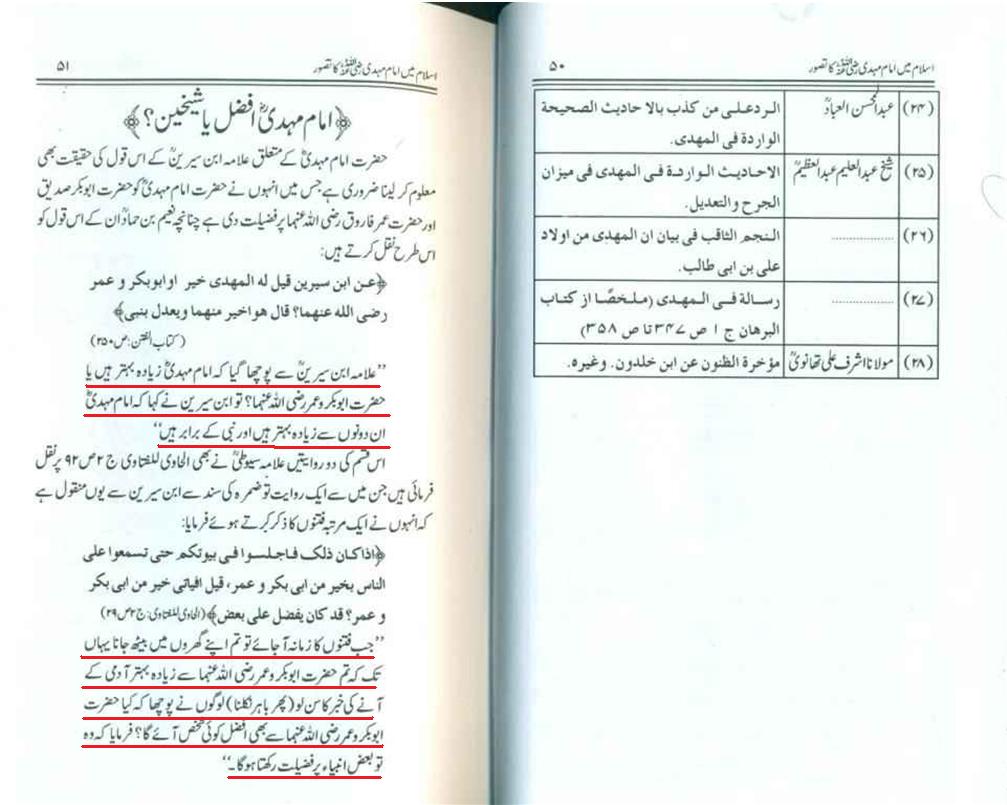 اسلام میں امام مہدی رضی اللہ عنہ کا تصور
۵۰
(۲۴) عبدالمحسن العبادؒ الرد علی من کذب بالا حادیث الصحیحة
الواردة فی المهدی.
(۲۵) شیخ عبدالعلیم عبدالعظیمؒ الاحادیث الواردة فی المهدی فی میزان
الجرح والتعدیل.
(۲۶) .................. النجم الثاقب فی بیان ان المهدی من اولاد
علی بن ابی طالب.
(۲۷) .................. رسالة فی المهدی (ملخصًا از کتاب
البرهان ج ۱ ص ۳۴۷ تا ص ۳۵۸)
(۲۸) مولانا اشرف علی تھانویؒ مؤخرة الظنون عن ابن خلدون. وغیره.
اسلام میں امام مہدی رضی اللہ عنہ کا تصور
۵۱
﴿امام مہدیؓ افضل یا شیخین؟﴾
حضرت امام مہدیؓ کے متعلق علامہ ابن سیرینؒ کے اس قول کی حقیقت بھی
معلوم کر لینا ضروری ہے جس میں انہوں نے حضرت امام مہدیؓ کو حضرت ابوبکر صدیق
اور حضرت عمر فاروق رضی اللہ عنہما پر فضیلت دی ہے چنانچہ نعیم بن حماد ان کے اس قول کو
اس طرح نقل کرتے ہیں:
﴿عن ابن سیرین قیل له المهدی خیر او ابوبکر و عمر
رضی الله عنهما؟ قال هو اخیر منهما ویعدل بنبی﴾
(کتاب الفتن: ص ۲۵۰)
”علامہ ابن سیرینؒ سے پوچھا گیا کہ امام مہدیؓ زیادہ بہتر ہیں یا
حضرت ابوبکر و عمر رضی اللہ عنہما؟ تو ابن سیرین نے کہا کہ امام مہدیؓ
ان دونوں سے زیادہ بہتر ہیں اور نبی کے برابر ہیں“
اس قسم کی دو روایتیں علامہ سیوطیؒ نے بھی الحاوی للفتاوی ج ۲ ص ۹۲ پر نقل
فرمائی ہیں جن میں سے ایک روایت تو ضمرہ کی سند سے ابن سیرین سے یوں منقول ہے
کہ انہوں نے ایک مرتبہ فتنوں کا ذکر کرتے ہوئے فرمایا:
﴿اذا کان ذلک فاجلسوا فی بیوتکم حتی تسمعوا علی
الناس بخیر من ابی بکر و عمر، قیل افیاتی خیر من ابی بکر
و عمر؟ قد کان یفضل علی بعض﴾ (الحاوی للفتاوی: ج ۲ ص ۲۹)
”جب فتنوں کا زمانہ آ جائے تو تم اپنے گھروں میں بیٹھ جانا یہاں
تک کہ تم حضرت ابوبکر و عمر رضی اللہ عنہما سے زیادہ بہتر آدمی کے
آنے کی خبر کا سن لو (پھر باہر نکلنا) لوگوں نے پوچھا کہ کیا حضرت
ابوبکر و عمر رضی اللہ عنہما سے بھی افضل کوئی شخص آئے گا؟ فرمایا کہ وہ
تو بعض انبیاء پر فضیلت رکھتا ہوگا۔“